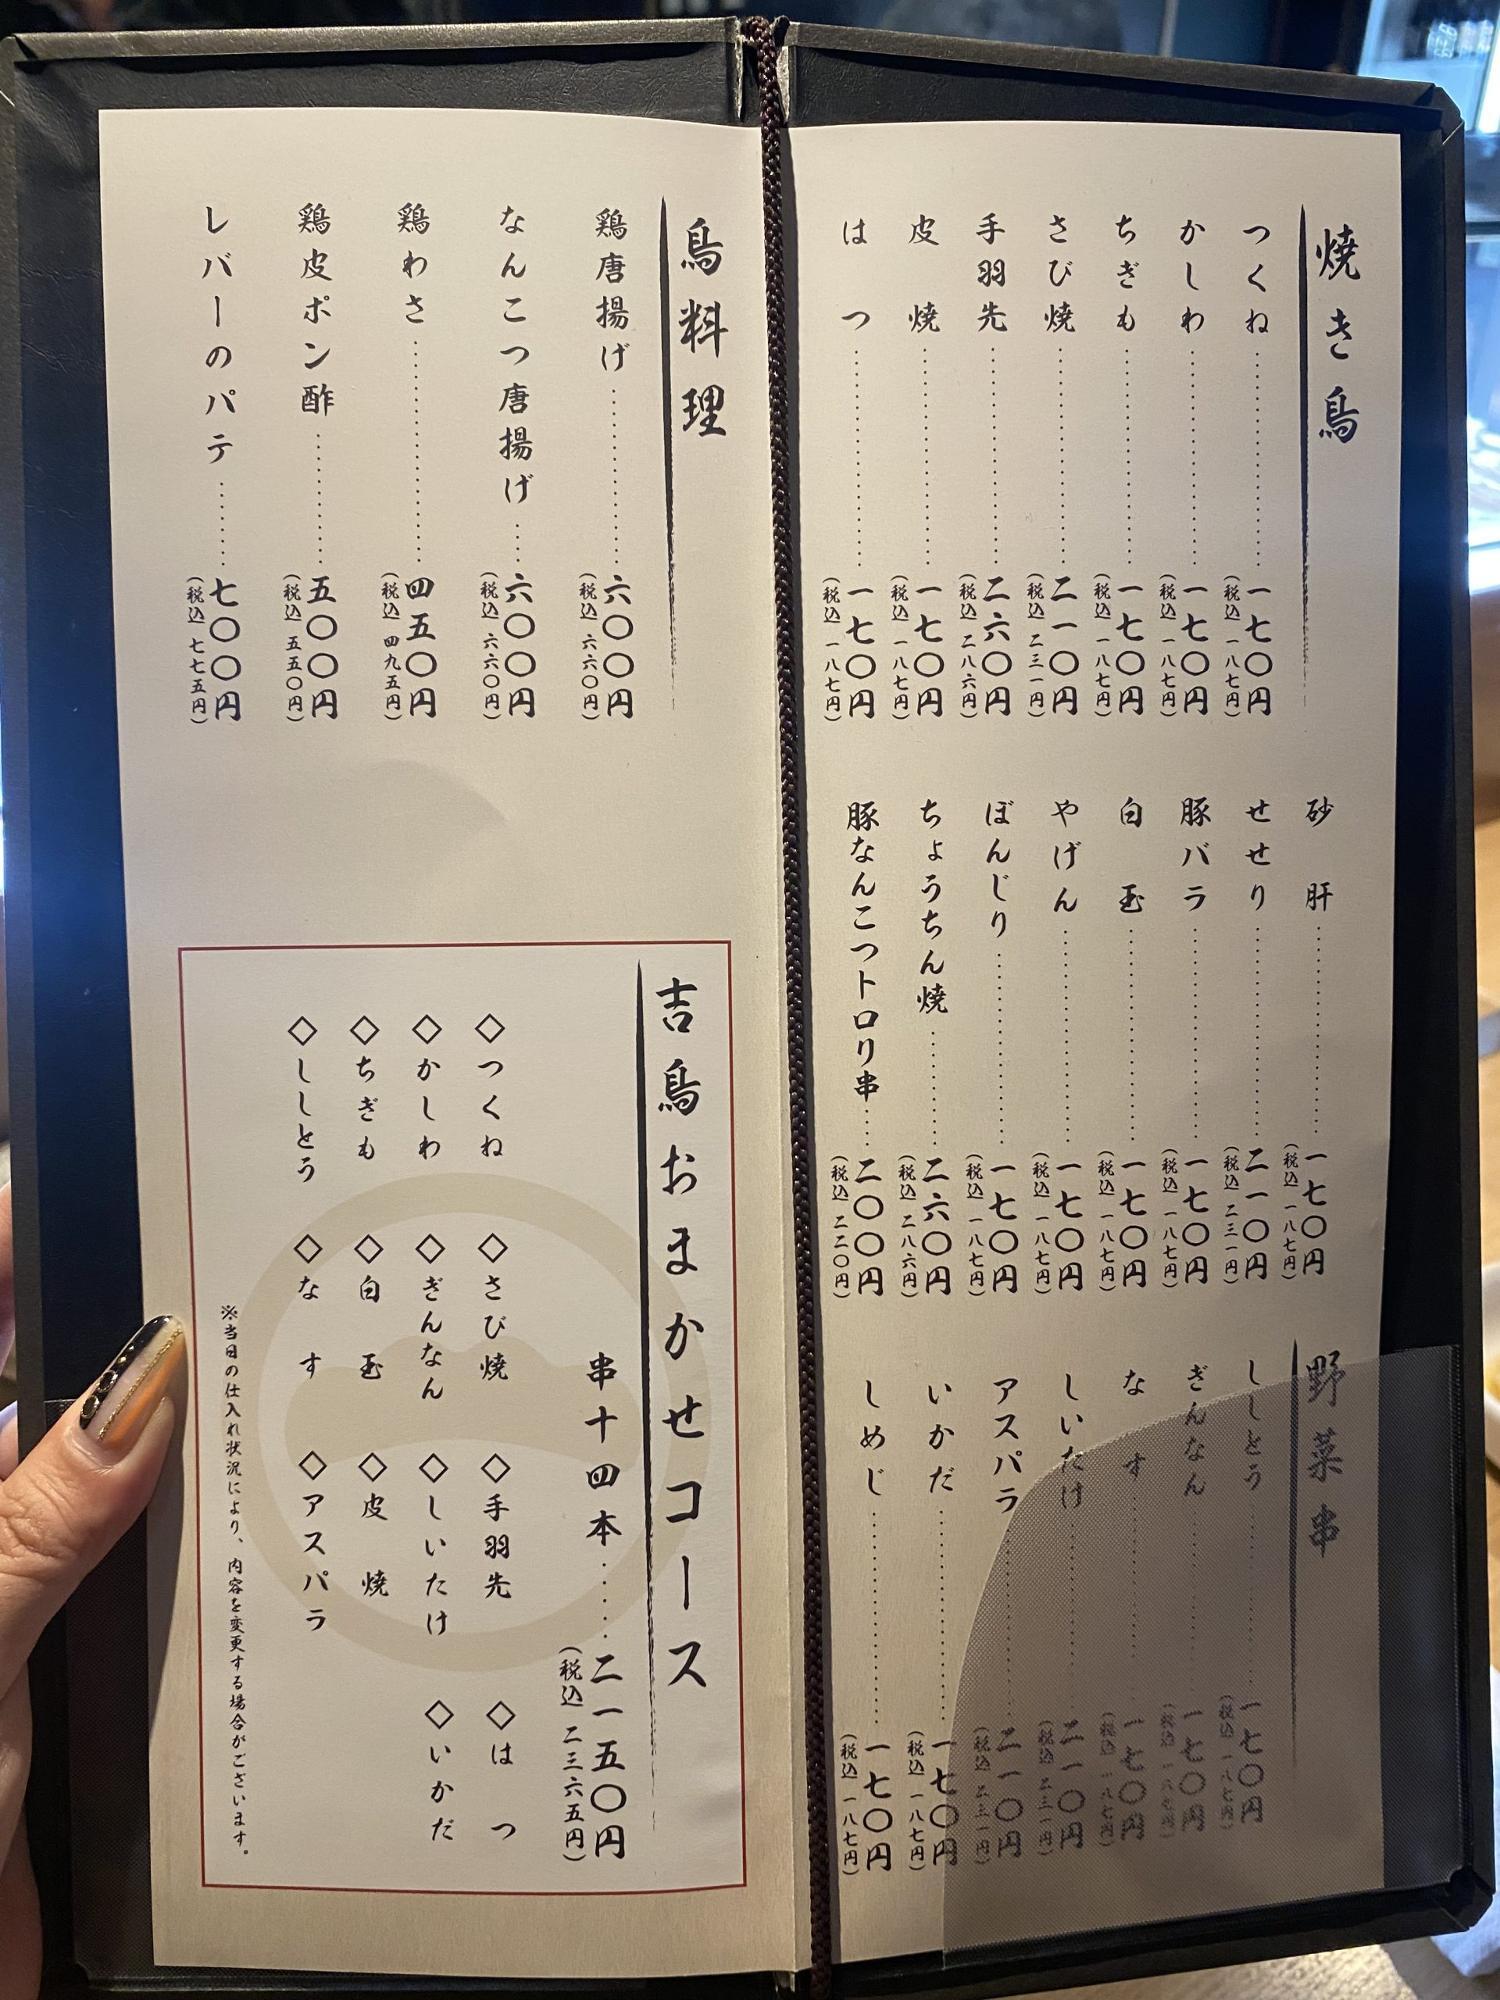 焼き鳥
つくね……一七〇円
(税込 一八七円)
かしわ……一七〇円
(税込 一八七円)
ちぎも……一七〇円
(税込 一八七円)
さび焼……二一〇円
(税込 二三一円)
手羽先……二六〇円
(税込 二八六円)
皮焼……一七〇円
(税込 一八七円)
はつ……一七〇円
(税込 一八七円)
砂肝……一七〇円
(税込 一八七円)
せせり……二一〇円
(税込 二三一円)
豚バラ……一七〇円
(税込 一八七円)
白玉……一七〇円
(税込 一八七円)
やげん……一七〇円
(税込 一八七円)
ぼんじり……一七〇円
(税込 一八七円)
ちょうちん焼……二六〇円
(税込 二八六円)
豚なんこつトロり串……二〇〇円
(税込 二二〇円)
野菜串
ししとう……一七〇円
(税込 一八七円)
ぎんなん……一七〇円
(税込 一八七円)
なす……一七〇円
(税込 一八七円)
しいたけ……二一〇円
(税込 二三一円)
アスパラ……二一〇円
(税込 二三一円)
いかだ……一七〇円
(税込 一八七円)
しめじ……一七〇円
(税込 一八七円)
鳥料理
鶏唐揚げ……六〇〇円
(税込 六六〇円)
なんこつ唐揚げ……六〇〇円
(税込 六六〇円)
鶏わさ……四五〇円
(税込 四九五円)
鶏皮ポン酢……五〇〇円
(税込 五五〇円)
レバーのパテ……七〇〇円
(税込 七七五円)
吉鳥おまかせコース
串十四本……二一五〇円
(税込 二三六五円)
◇つくね ◇さび焼 ◇手羽先 ◇はつ
◇かしわ ◇ぎんなん ◇しいたけ ◇いかだ
◇ちぎも ◇白玉 ◇皮焼
◇ししとう ◇なす ◇アスパラ
※当日の仕入れ状況により、内容を変更する場合がございます。